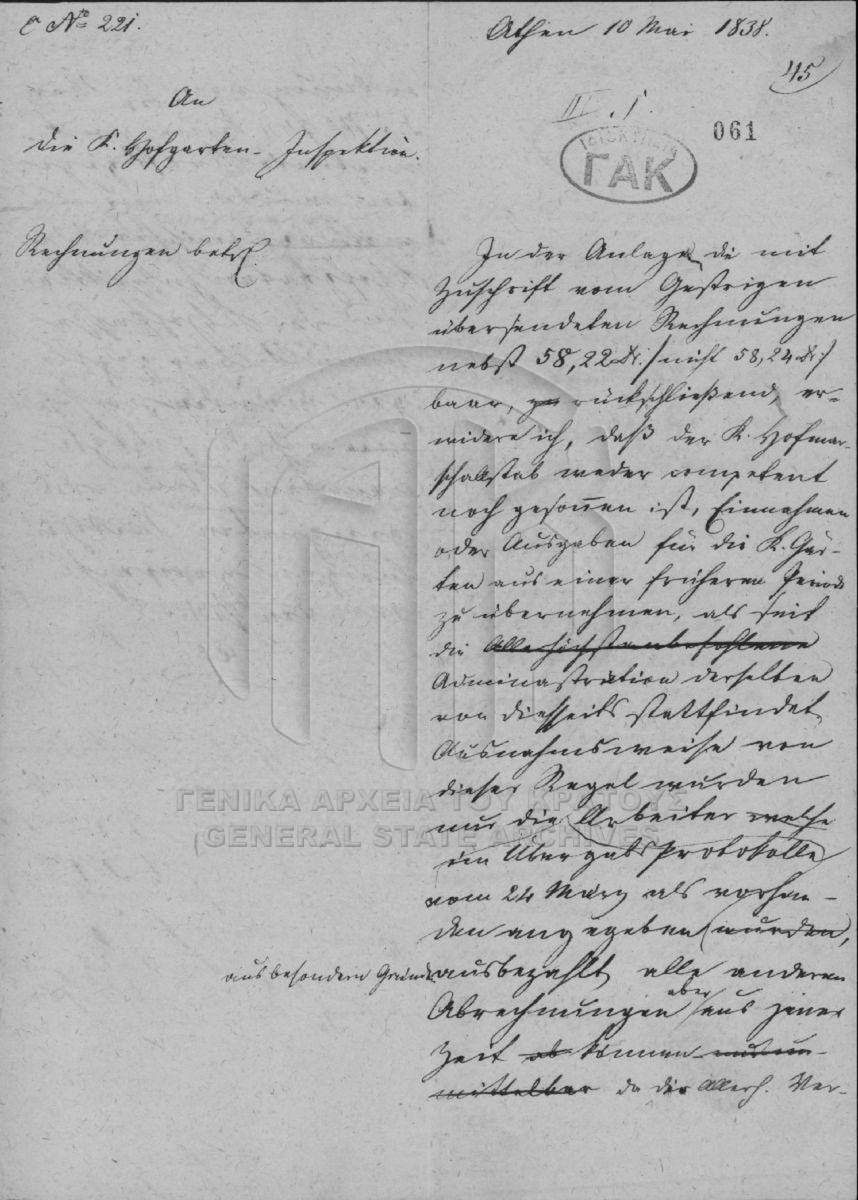 C No 221.
Athen 10 Mai 1838.
45
An
die K. Hofgarten-Inspektion.
III. 1.
061
ΓΑΚ
Rechnungen betr.
In der Anlage die mit
Zuschrift vom Gestrigen
übersendeten Rechnungen
nebst 58,22 Dr. /:nicht 58,24 Dr:/
baar, zu rückschließend, er-
widere ich, daß der K. Hofmar-
schallstab weder competent
noch gesonnen ist, Einnahmen
oder Ausgaben für die K. Gär-
ten aus einer früheren Periode
zu übernehmen, als seit
die Allerhöchstanbefohlene
Administration derselben
von diesseits stattfindet.
Ausnahmsweise von
dieser Regel wurden
nur die Arbeiter welche
im Übergabsprotokolle
vom 24 März als vorhan-
den angegeben wurden,
aus besondern Gründen ausbezahlt, alle anderen
Abrechnungen aber aus jener
Zeit können
mittelbar da die Allerh. Ver-
ΓΕΝΙΚΑ ΑΡΧΕΙΑ ΤΟΥ ΚΡΑΤΟΥΣ
GENERAL STATE ARCHIVES